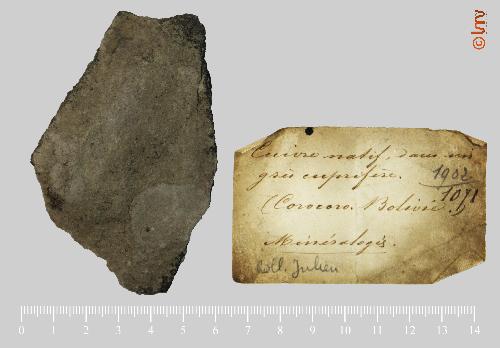 Cuivre natif, dans un
grès cuprifère. 1902
1071
(Corocoro. Bolivie.)
Minéralogie.
Coll. Julien
0 1 2 3 4 5 6 7 8 9 10 11 12 13 14